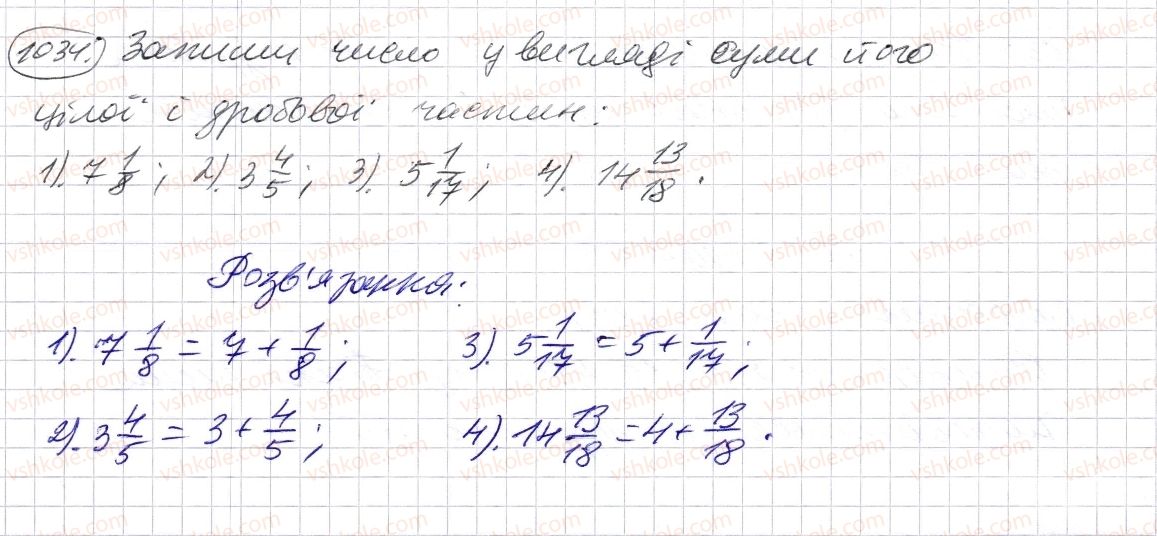 1034.) Запиши число у вигляді суми його
цілої і дробової частин:
1). 7 1/8 ; 2). 3 4/5 ; 3). 5 1/17 ; 4). 14 13/18 .
Розв'язання:
1). 7 1/8 = 7 + 1/8 ; 3). 5 1/17 = 5 + 1/17 ;
2). 3 4/5 = 3 + 4/5 ; 4). 14 13/18 = 4 + 13/18 .
vshkole.com